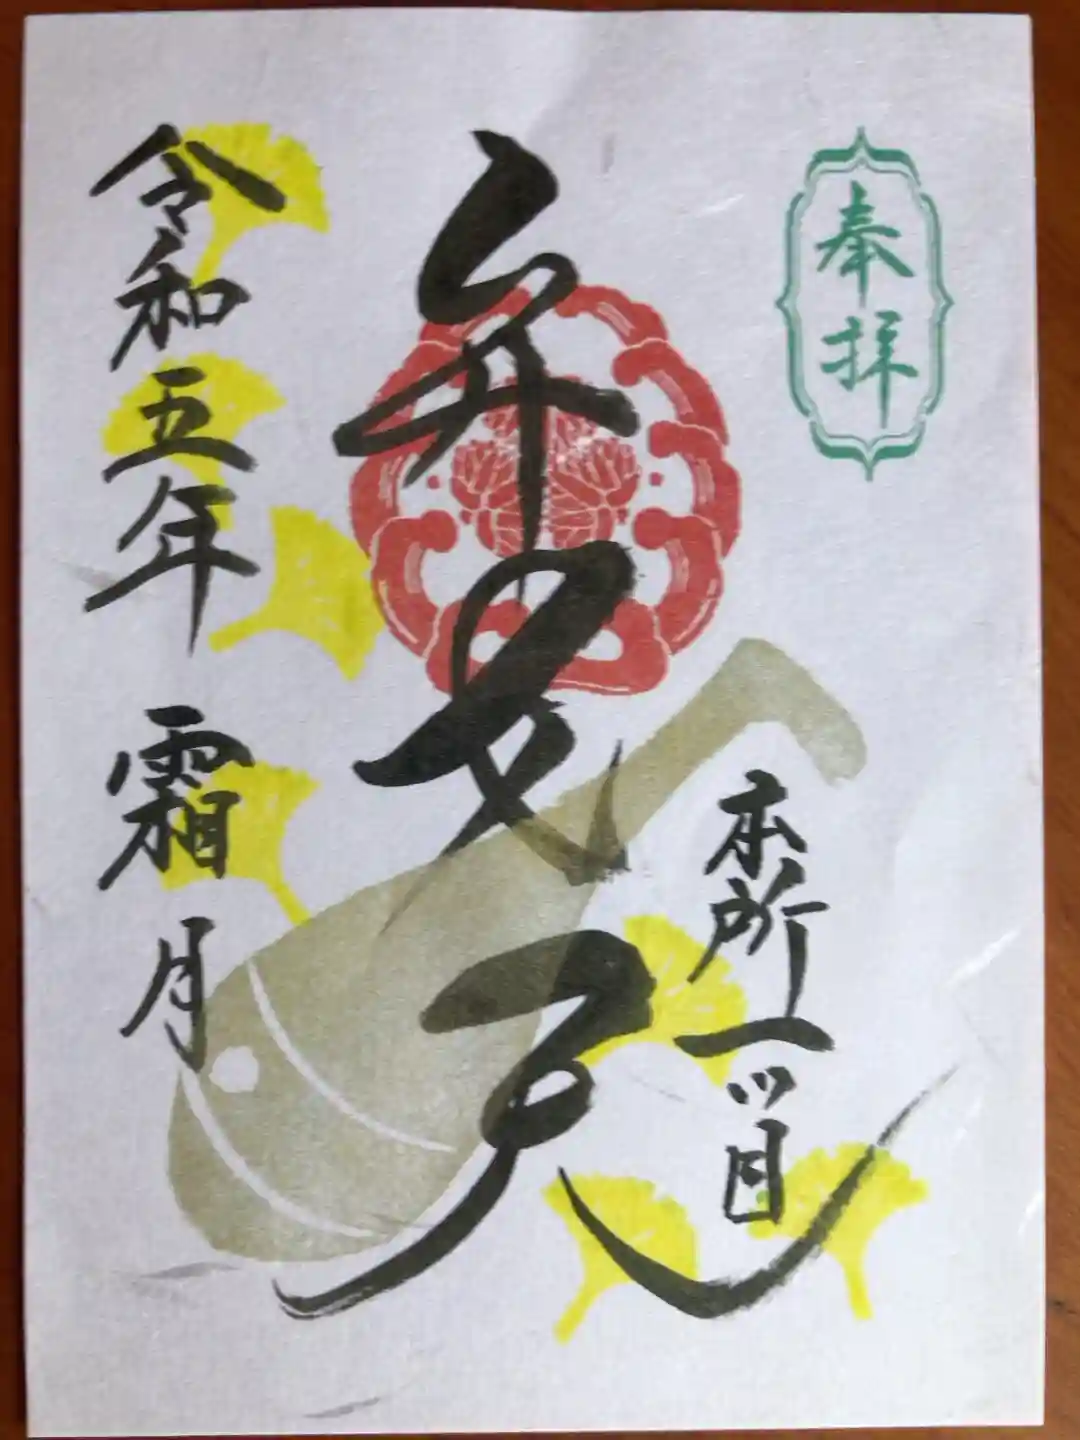 奉拝
本所一ツ目
弁天
令和五年 霜月